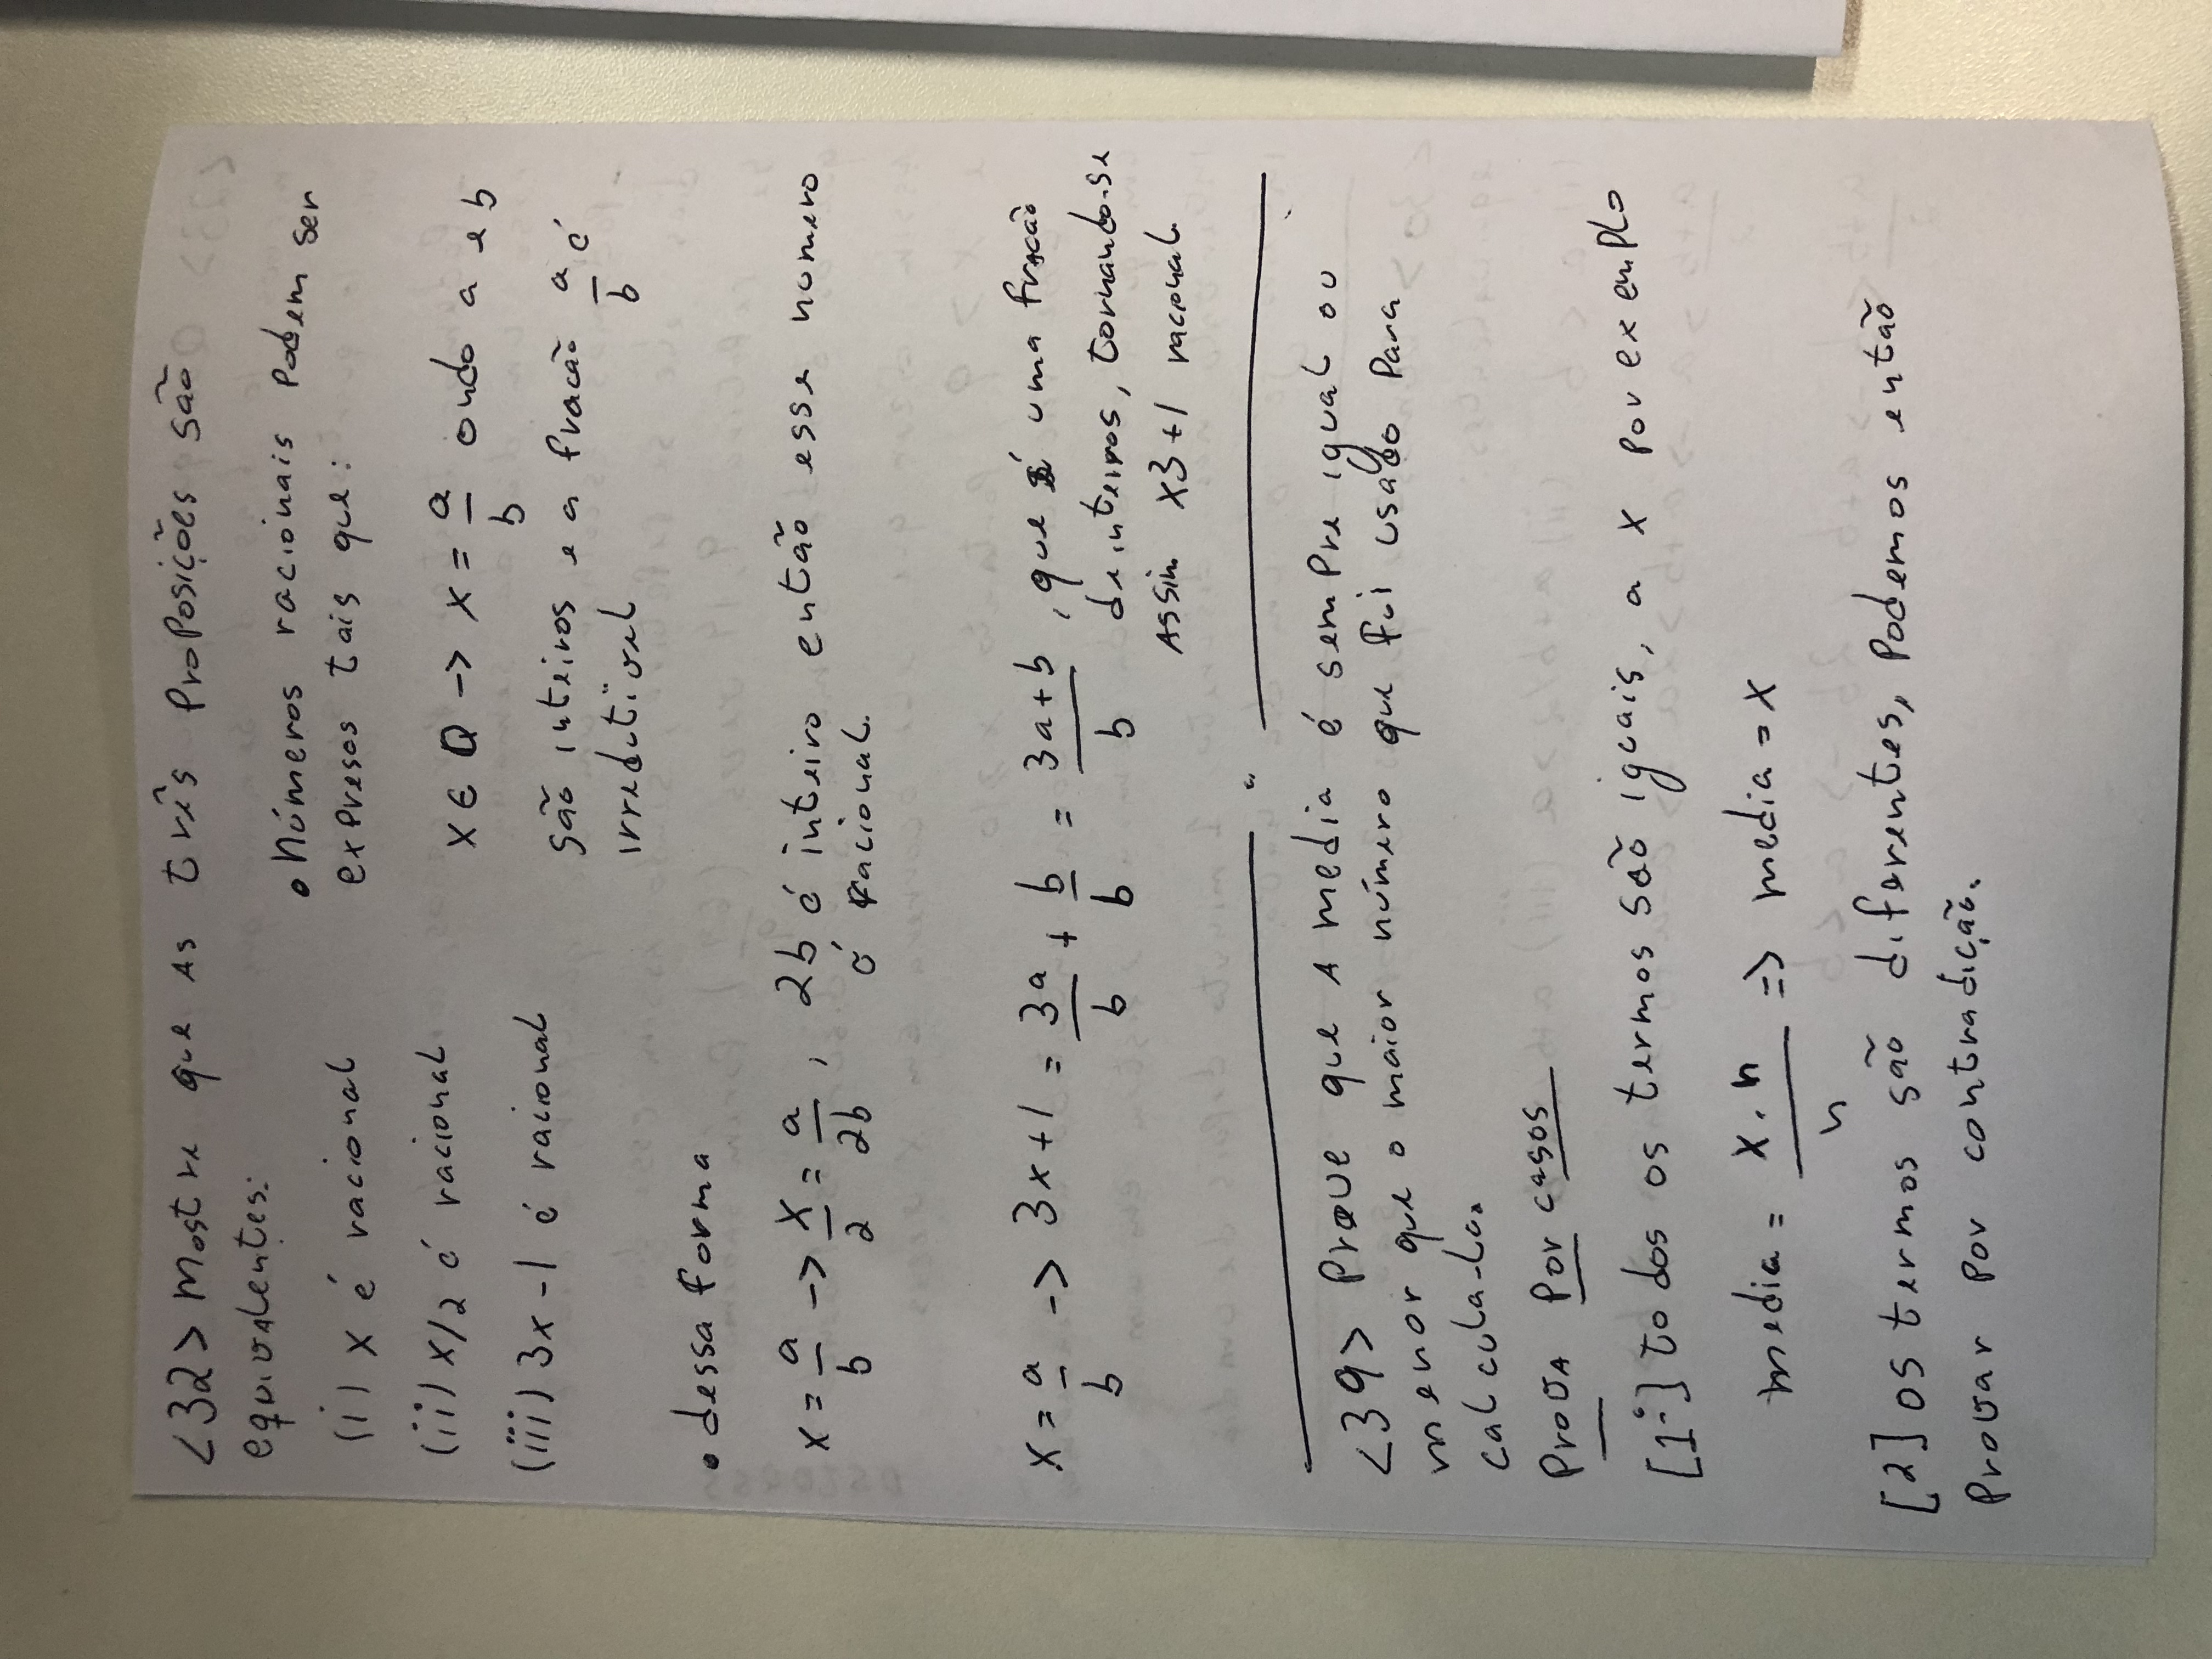 <32> Mostre que as três proposições são
equivalentes:
(i) x é racional
(ii) x/2 é racional
(iii) 3x-1 é racional
• Números racionais podem ser
expresos tais que:
x ∈ Q -> x = a/b onde a e b
são inteiros e a fracão a/b é
irredutível
• dessa forma
x = a/b -> x/2 = a/2b , 2b é inteiro então esse numero
é racional.
x = a/b -> 3x+1 = 3a/b + b/b = 3a+b/b , que é uma fracão
de inteiros, tornando-se
Assim x3+1 racional
<39> Prove que a media é sempre igual ou
menor que o maior número que foi usado para
calcula-la.
Prova por casos
[1º] todos os termos são iguais, a x por exemplo
media = x.n/n => media = x
[2] os termos são diferentes, podemos então
provar por contradição.